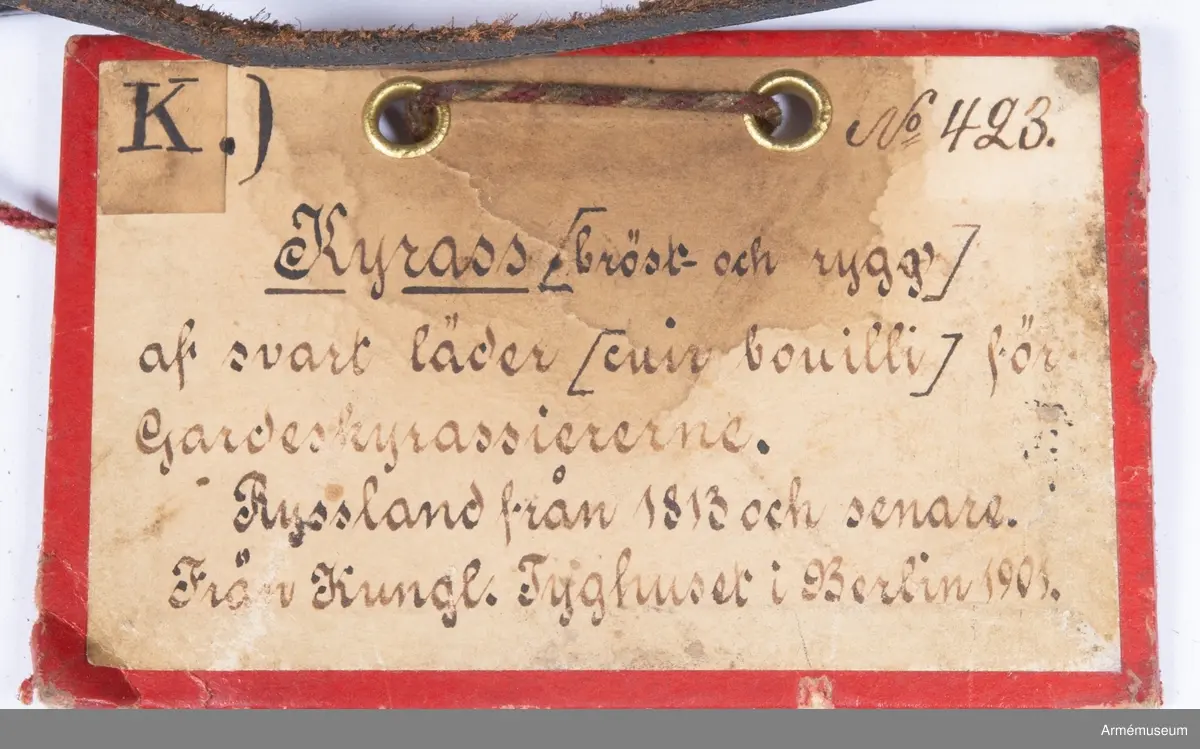 K.) No 423.
Kyrass [bröst- och rygg]
af svart läder [cuir bouilli] för
Gardeskyrassiererne.
Ryssland från 1813 och senare.
Från Kungl. Tyghuset i Berlin 1901.
Armémuseum